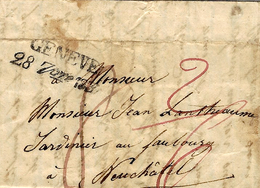 GENÈVE
28
à Monsieur
Monsieur Jean
Jardinier au faubourg
à Neuchâtel